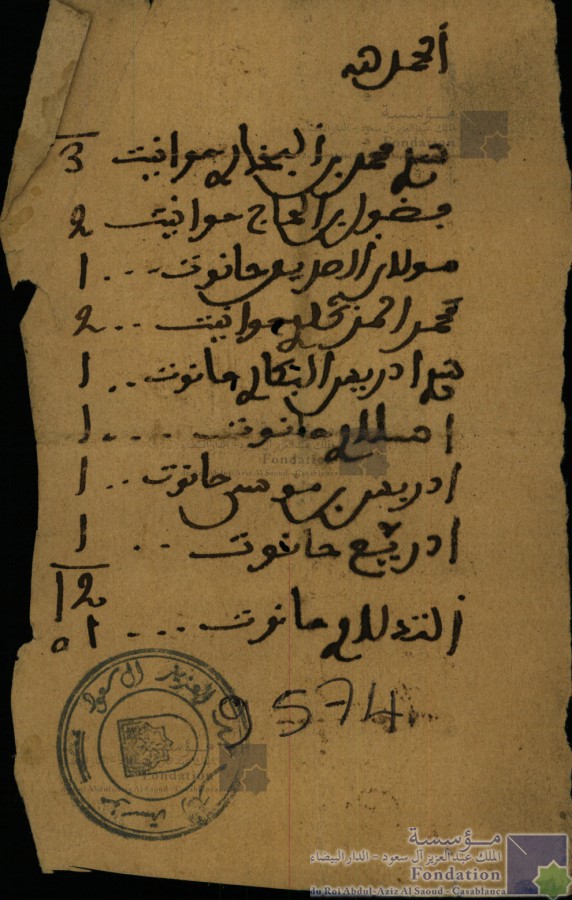 الحمد لله
محمد بن البخاري حوانيت 3
بضول بن الحاج حوانيت 2
مولاي ادريس حانوت ... 1
محمد احمد حوانيت .. 2
سي ادريس البكاي حانوت .. 1
حانوت .... 1
ادريس بن موسى حانوت .. 1
ادريبع حانوت .. 1
12
التدلاوي حانوت ... 01
9574
مؤسسة
الملك عبد العزيز آل سعود - الدار البيضاء
Fondation
du Roi Abdul-Aziz Al Saoud - Casablanca